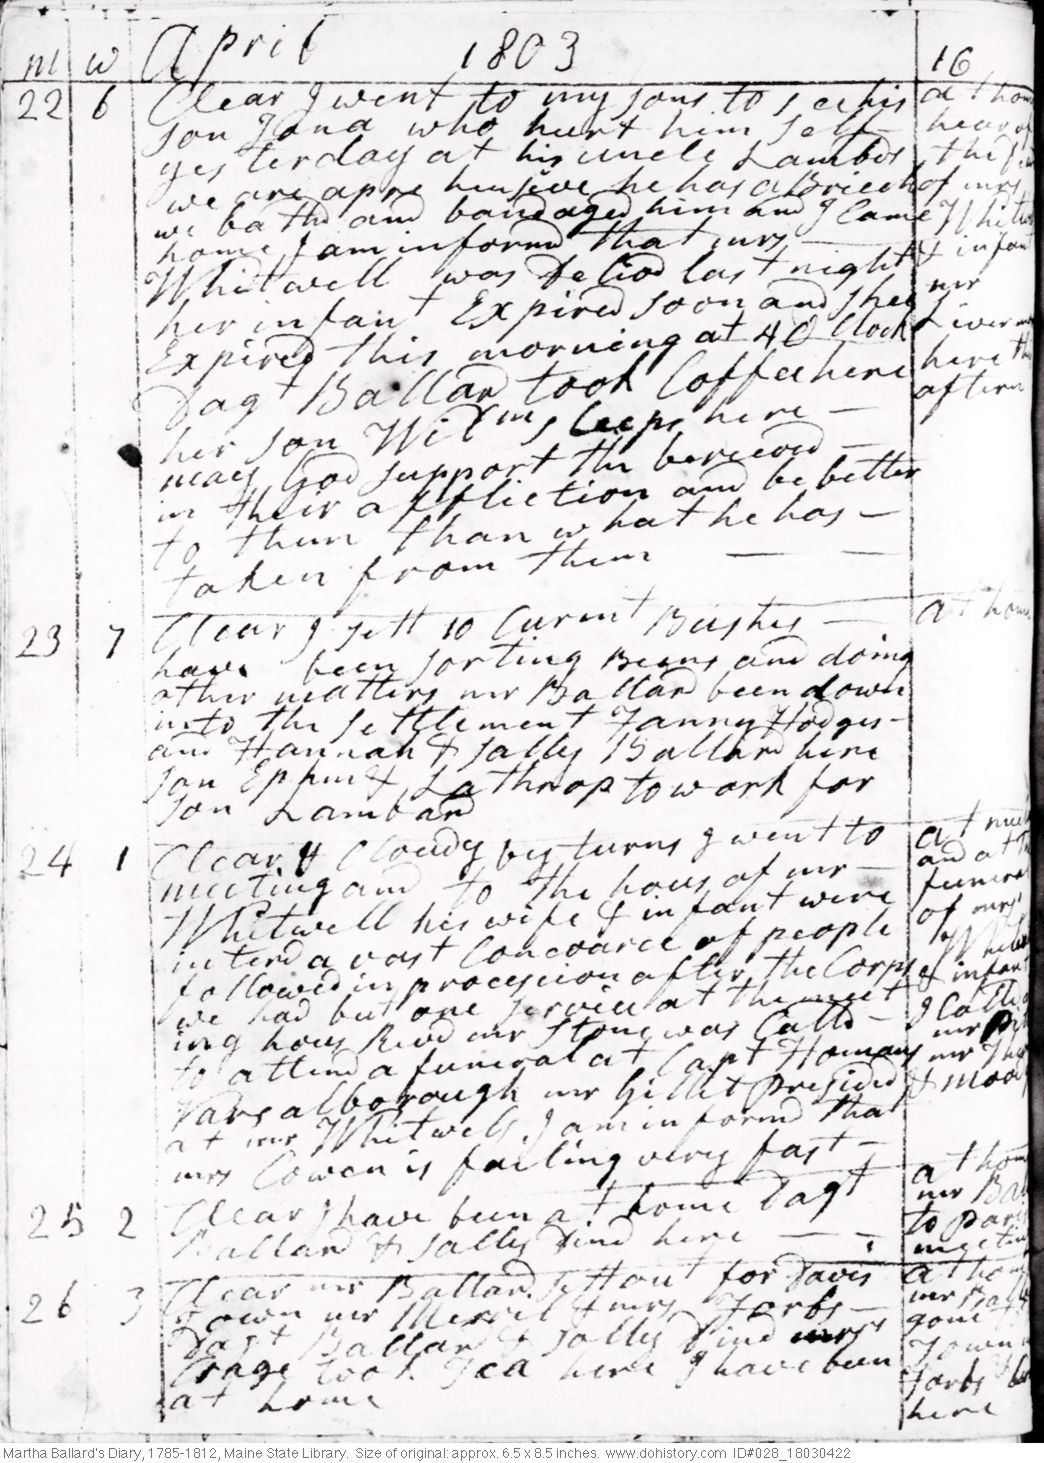 m w April 1803 16
22 6 Clear I went to my sons to see his
son Jona who hurt him self
yesterday at his uncle Lambds
we are aprehensive he has a Briech
we bathd and bandaged him and I Came
home I am informd that mrs
Whitwell was deliod last night
her infant Expired soon and shee
Expired this morning at 4 O Clock
Dagt Ballard took Coffee here
her son Wilm sleeps here
may God support the bereved
in their affliction and be better
to them than what he has
taken from them
at home
hear of
the
of mrs
& infan
mr
here
aftern
23 7 Clear I sett 10 Curent Bushes
have been sorting Beens and doing
other matters mr Ballard been down
into the settlement Fanny Hodges
and Hannah & Sally Ballard here
son Ephm & Lathrop to work for
son Lambard
at home
24 1 Clear & Cloudy by turns I went to
meeting and to the hous of mr
Whitwell his wife & infant were
interd a vast Concoarce of people
followed in procescion after the Corps
we had but one service at the meet
ing hous Revd mr Stone was Calld
to attend a funeral at Capt Homans
Varsalborough mr Gillet presided
at mr Whitwels I am informd that
mrs Cowen is failing very fast
at
and at
funera
of mrs
& infant
I
mr
mr
& mood
25 2 Clear I have been at home Dagt
Ballard & Sally Dind here
at home
mr Ba
to
meetin
26 3 Clear mr Ballard sett out for Davis
Town mr Merril & mrs Forbs
Dagt Ballard & Sally Dind mrs
Crage took Tea here I have been
at home
at home
mr Ball
gone
Town
Forbs
here
Martha Ballard's Diary, 1785-1812, Maine State Library. Size of original: approx. 6.5 x 8.5 inches. www.dohistory.com ID#028_18030422